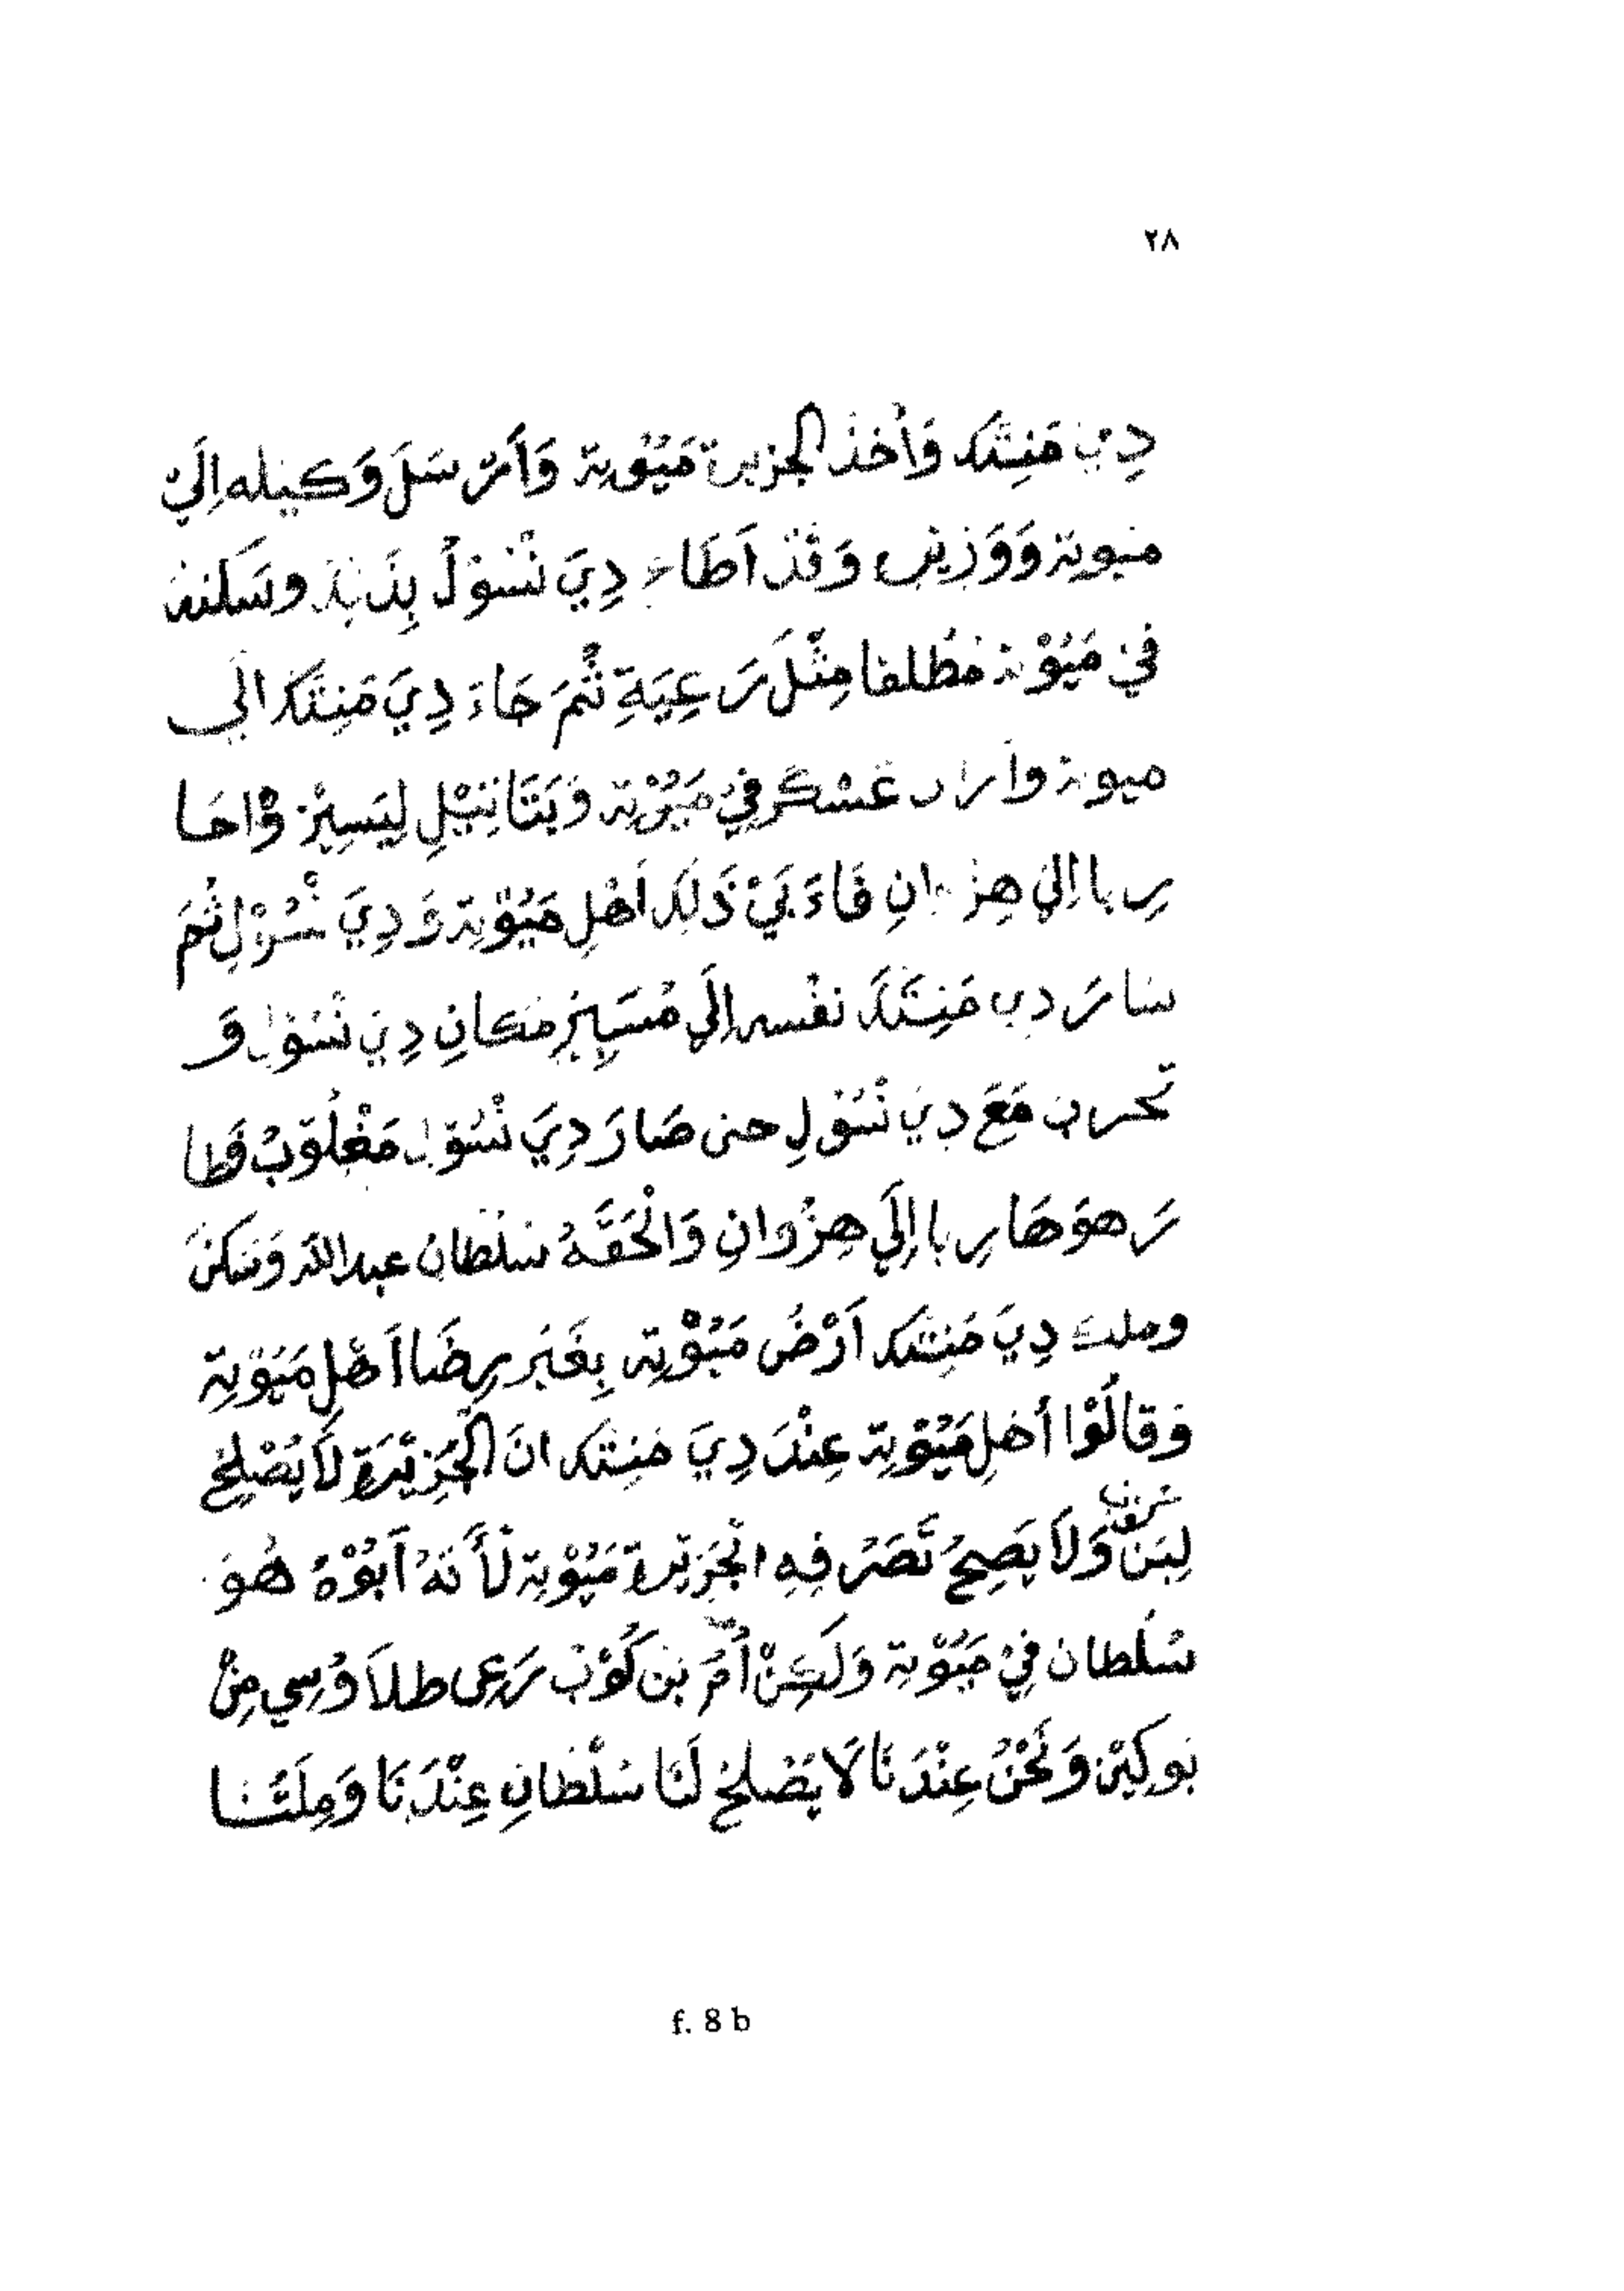 ٢٨
دِيَ مَنِتَكَ وَأَخَذ الجزيرة مَيُوْتِة وَأَرْسَلَ وَكيله اِلَيْ
ميوتة وَوَزيره وَقَدْ اَطَاعَ دِيَ نْسُوْلُ
فيْ مَيُوْتة مُطْلقا مِثْلَ رَعِيَةِ ثُمَ جَاءَ دِيَ مَنِتَكَ الَي
ميوتة وأراد عَسْكَر فِيْ مَيُوْتِة وَبَتَانِبَيْلِ لِيَسِيْرُ
رِبا اِلَيْ هِنْزْوَانِ فَاءَبَيْ ذَلِكَ اَهْلِ مَيُوْتِة وَدِيَ نْسُوْلِ ثُمَ
سَارَ دِيَ مَنِتَكَ نفْسه اِلَي مُسَيِيْرِ مَكانِ دِيَ نْسُوْلِ وَ
تحرب مَعَ دِيَ نْسُوْلِ حتى صَارَ دِيَ نْسُوْلِ مَغْلُوْبُ فَطا
رَ هوَ هَارِبا اِلَي هِنْزُوانِ وَالْحَقَهُ سُلْطانُ عبد الله وَسَكنَ
وملك دِيَ مَنِتَكَ اَرْضُ مَيُوْتِة بِغَيْرِ رِضَا اَهْلِ مَيُوْتِة
وَقالُوْا أَهلِ مَيُوْتِة عِنْدَ دِيَ مَنِتَكَ انَ الْجَزِيْرَة لَا يُصْلِحُ
لِبَنْ وَلَا يَصِحُ تَصَرُفِهِ الْجَزِيْرة مَيُوْتِة لَأَنَهُ اَبُوْهُ هُوَ
سُلْطان فِيْ مَيُوْتِة وَلَكِنْ أُمُ بَن كُوْبُ رَعِى طلاَوُسِي مِنْ
بوكِيْن وَنَحْنُ عِنْدَنَا لَا يَصْلحُ لَنَا سُلْطانِ عِنْدَنَا وَمِلَتَنا
f. 8 b